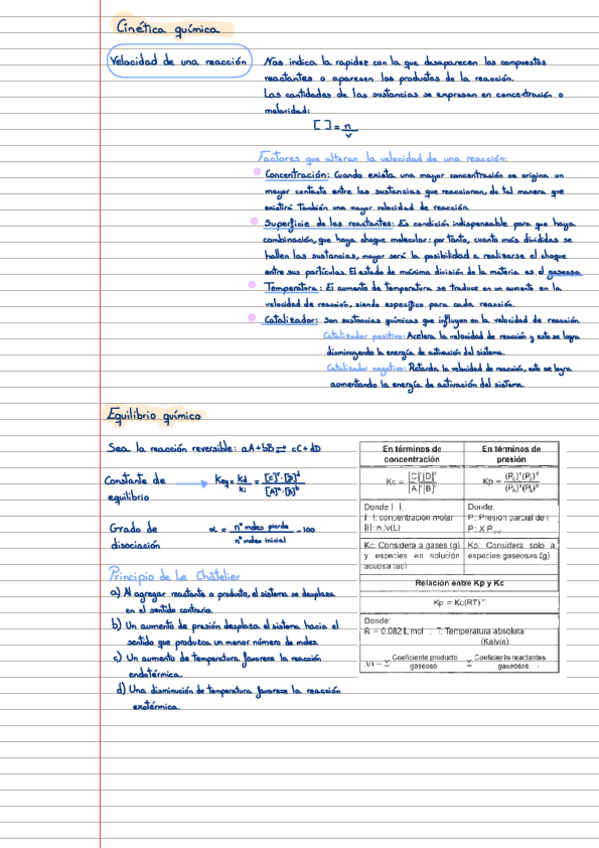 Cinética química
Velocidad de una reacción
Nos indica la rapidez con la que desaparecen los compuestos
reactantes o aparecen los productos de la reacción.
Las cantidades de las sustancias se expresan en concentración o
molaridad:
[ ] = n
v
Factores que alteran la velocidad de una reacción:
Concentración: Cuando exista una mayor concentración se origina un
mayor contacto entre las sustancias que reaccionan, de tal manera que
existirá también una mayor velocidad de reacción.
Superficie de los reactantes: Es condición indispensable para que haya
combinación, que haya choque molecular: por tanto, cuanto más divididas se
hallen las sustancias, mayor será la posibilidad a realizarse el choque
entre sus partículas. El estado de máxima división de la materia es el gaseoso.
Temperatura: El aumento de temperatura se traduce en un aumento en la
velocidad de reacción, siendo específico para cada reacción.
Catalizador: Son sustancias químicas que influyen en la velocidad de reacción
Catalizador positivo: Acelera la velocidad de reacción y esto se logra
disminuyendo la energía de activación del sistema.
Catalizador negativo: Retarda la velocidad de reacción, esto se logra
aumentando la energía de activación del sistema.
Equilibrio químico
Sea la reacción reversible: aA + bB ⇌ cC + dD
Constante de
equilibrio
Keq = kd/ki = [C]ᶜ·[D]ᵈ/[A]ᵃ·[B]ᵇ
Grado de
disociación
α = nº moles pierde / nº moles inicial · 100
Principio de Le Châtelier
a) Al agregar reactante o producto, el sistema se desplaza
en el sentido contrario.
b) Un aumento de presión desplaza el sistema hacia el
sentido que produzca un menor número de moles.
c) Un aumento de temperatura favorece la reacción
endotérmica.
d) Una disminución de temperatura favorece la reacción
exotérmica.
En términos de
concentración
En términos de
presión
Kc = [C]ᶜ[D]ᵈ/[A]ᵃ[B]ᵇ
Kp = (Pc)ᶜ(PD)ᵈ/(PA)ᵃ(PB)ᵇ
Donde [ ]:
[ ]: concentración molar
[ ]: n/V(L)
Donde:
P: Presión parcial de i
P: X P
Kc: Considera a gases (g)
y especies en solución
acuosa (ac)
Kp: Considera solo a
especies gaseosas (g)
Relación entre Kp y Kc
Kp = Kc(RT)
Donde:
R = 0,082 L mol : T: Temperatura absoluta
(Kelvin)
Δn = Σ Coeficiente producto gaseoso Σ Coeficiente reactantes gaseosos